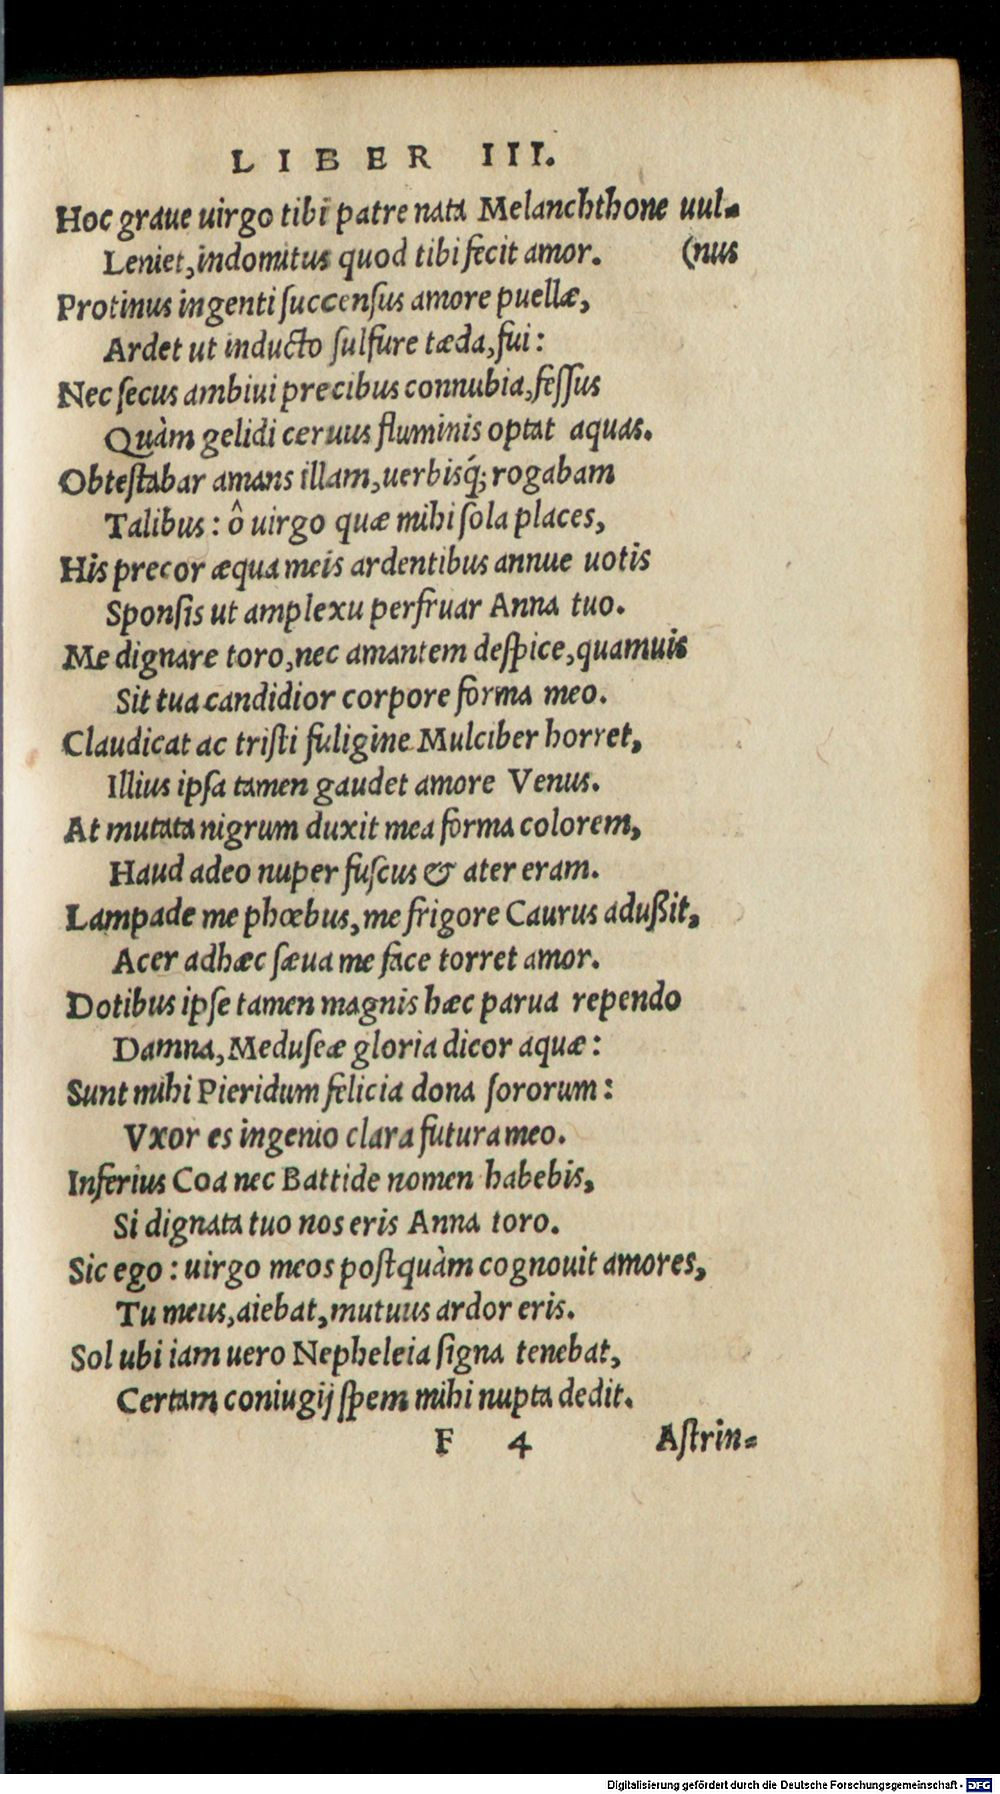 LIBER III.
Hoc graue uirgo tibi patre nata Melanchthone uul-
Leniet, indomitus quod tibi fecit amor. (nus
Protinus ingenti ſuccenſus amore puellæ,
Ardet ut inducto ſulfure tæda, fui:
Nec ſecus ambiui precibus connubia, feſſus
Quàm gelidi ceruus fluminis optat aquas.
Obteſtabar amans illam, uerbisq́; rogabam
Talibus: ô uirgo quæ mihi ſola places,
His precor æqua meis ardentibus annue uotis
Sponſis ut amplexu perfruar Anna tuo.
Me dignare toro, nec amantem deſpice, quamuis
Sit tua candidior corpore forma meo.
Claudicat ac triſti fuligine Mulciber horret,
Illius ipſa tamen gaudet amore Venus.
At mutata nigrum duxit mea forma colorem,
Haud adeo nuper fuſcus & ater eram.
Lampade me phœbus, me frigore Caurus adußit,
Acer adhæc ſæua me face torret amor.
Dotibus ipſe tamen magnis hæc parua rependo
Damna, Meduſeæ gloria dicor aquæ:
Sunt mihi Pieridum felicia dona ſororum:
Vxor es ingenio clara futura meo.
Inferius Coa nec Battide nomen habebis,
Si dignata tuo nos eris Anna toro.
Sic ego: uirgo meos poſtquàm cognouit amores,
Tu meus, aiebat, mutuus ardor eris.
Sol ubi iam uero Nepheleia ſigna tenebat,
Certam coniugij ſpem mihi nupta dedit.
F 4 Aſtrin-
Digitalisierung gefördert durch die Deutsche Forschungsgemeinschaft - DFG